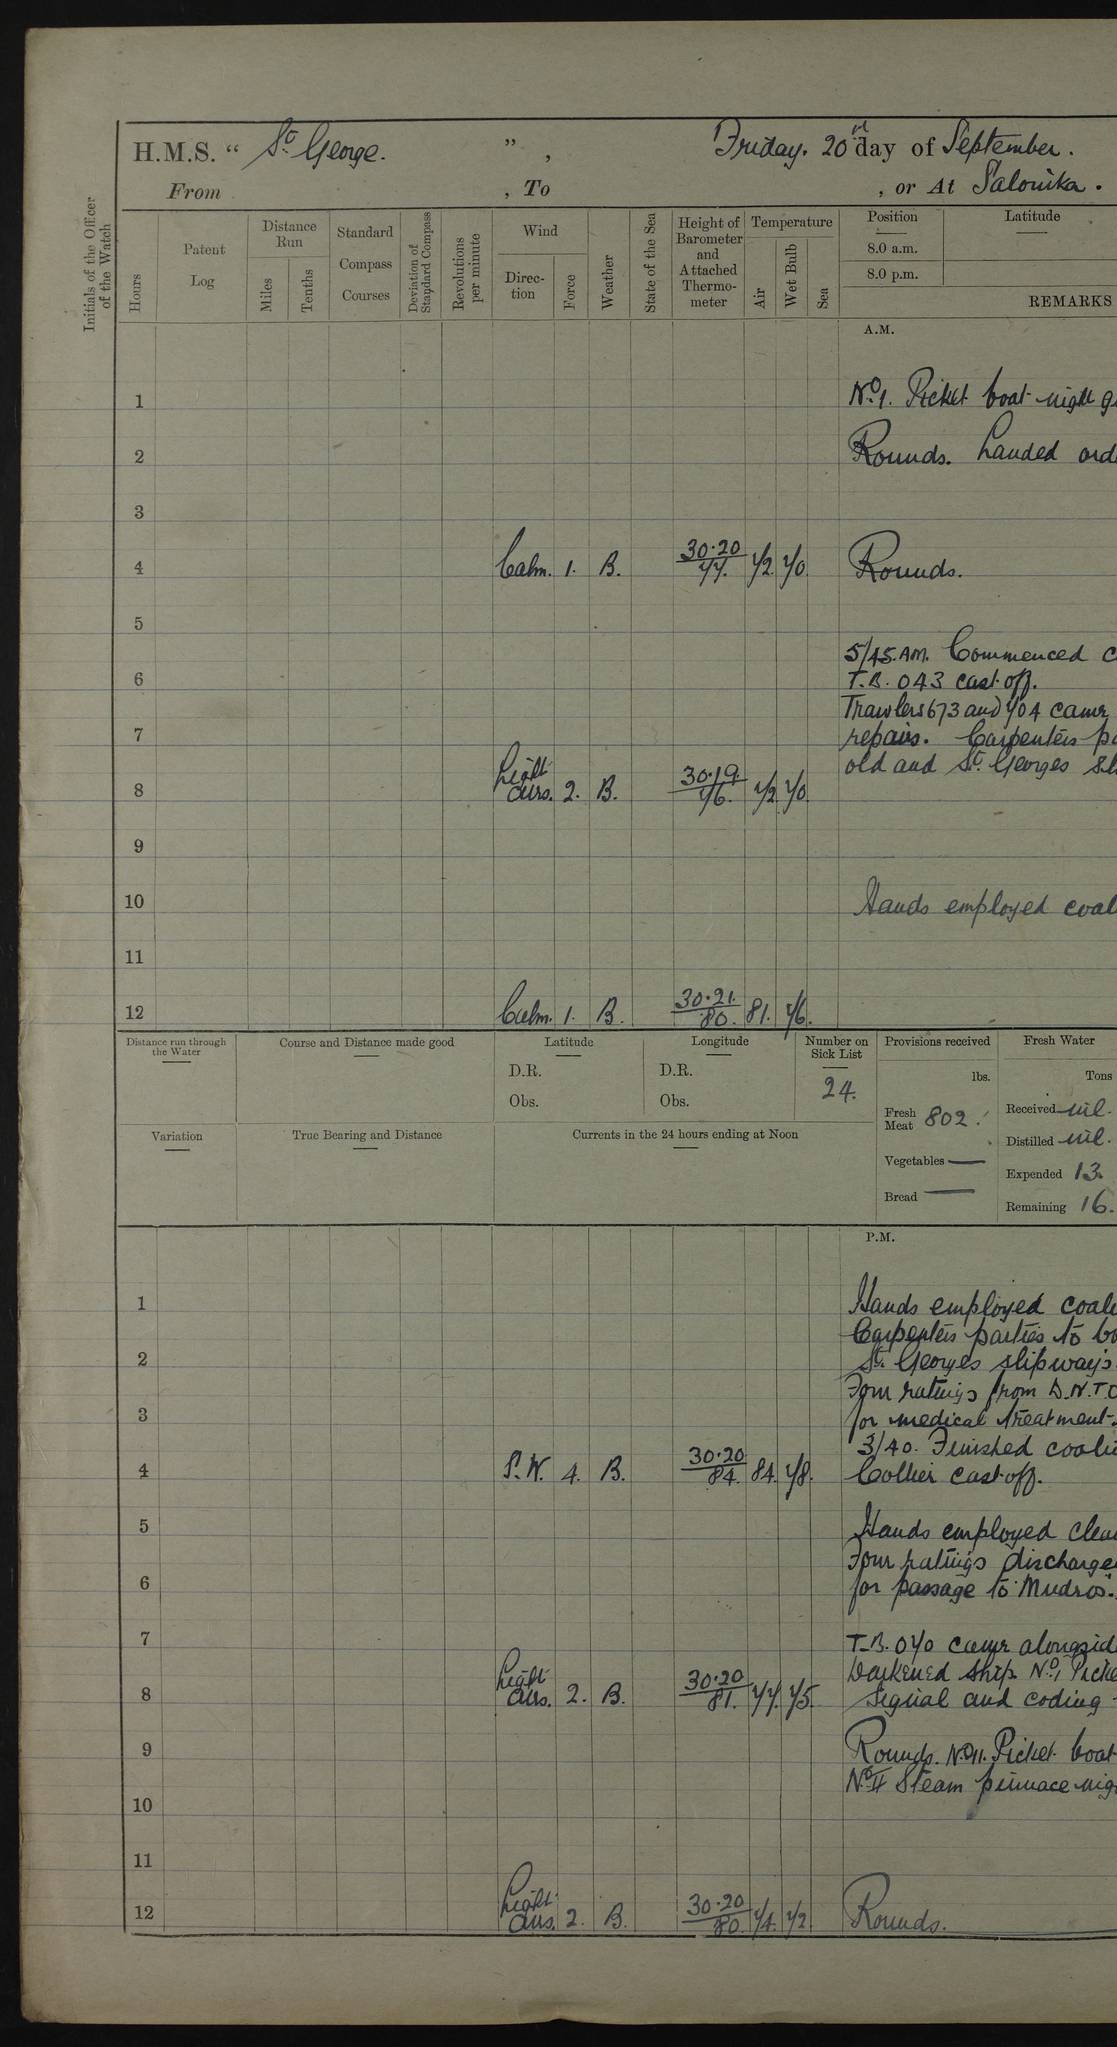 H.M.S. “ St George. ” , Friday. 20rd day of September.
From , To , or At Salonika.
Initials of the Officer of the Watch
Hours
Patent Log
Distance Run
Miles
Tenths
Standard Compass Courses
Deviation of Standard Compass
Revolutions per minute
Wind
Direc-tion
Force
Weather
State of the Sea
Height of Barometer and Attached Thermo-meter
Temperature
Air
Wet Bulb
Sea
Position
8.0 a.m.
8.0 p.m.
Latitude
REMARKS
A.M.
1 No. 1. Picket boat night g
2 Rounds. Landed ord
3
4 Calm. 1. B. 30.20 77. 72. 70. Rounds.
5
5/45. AM. Commenced c
6 T.B. 043 cast off.
Trawlers 673 and 704 came
7 repairs. Carpenters pa
old and St. Georges sl
8 Light airs. 2. B. 30.19. 76. 72 70
9
10 Hands employed coal
11
12 Calm. 1. B. 30.21. 80. 81. 76.
Distance run through the Water
Course and Distance made good
Latitude
D.R.
Obs.
Longitude
D.R.
Obs.
Number on Sick List
24.
Provisions received
lbs.
Fresh Meat 802.
Vegetables —
Bread —
Fresh Water
Tons
Received nil.
Distilled nil.
Expended 13.
Remaining 16.
Variation
True Bearing and Distance
Currents in the 24 hours ending at Noon
P.M.
1 Hands employed coali
Carpenters parties to bo
2 St. Georges slipways.
Four ratings from D.N.T.O
3 for medical treatment.
3/40. Finished coali
4 S.W. 4. B. 30.20 84. 84. 78. Collier cast off.
5 Hands employed clea
Four ratings discharge
6 for passage to Mudros.
7 T.B. 070 came alongsid
Darkened ship. No. 1 Picke
8 Light airs. 2. B. 30.20 81. 77. 75. signal and coding
9 Rounds. No. 11. Picket boat
No. II Steam pinnace nig
10
11
12 Light airs. 2. B. 30.20 80. 74. 72. Rounds.